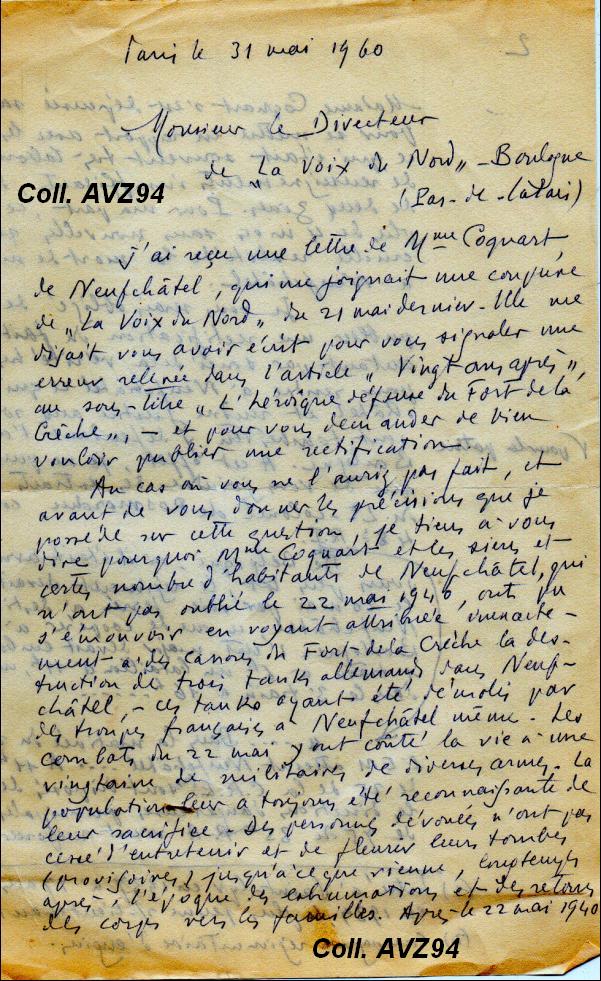 Paris le 31 mai 1960
2
Monsieur le Directeur
de „La Voix du Nord„ - Boulogne
Coll. AVZ94
(Pas-de-Calais)
J'ai reçu une lettre de Mme Coquart,
de Neufchâtel, qui me joignait une coupure
de „La Voix du Nord„ du 21 mai dernier. Elle me
disait vous avoir écrit pour vous signaler une
erreur relevée dans l'article „Vingt ans après„,
au sous-titre „L'héroïque défense du Fort de la
Crèche„, - et pour vous demander de bien
vouloir publier une rectification.
Au cas où vous ne l'auriez pas fait, et
avant de vous donner les précisions que je
possède sur cette question, je tiens à vous
dire pourquoi Mme Coquart et les siens et
certes nombre d'habitants de Neufchâtel, qui
n'ont pas oublié le 22 mai 1940, ont pu
s'émouvoir en voyant attribuée inexacte-
ment aux canons du Fort de la Crèche la des-
truction de trois tanks allemands dans Neuf-
châtel, - ces tanks ayant été démolis par
des troupes françaises à Neufchâtel même. Les
combats du 22 mai y ont coûté la vie à une
vingtaine de militaires de diverses armes. La
population leur a toujours été reconnaissante de
leur sacrifice. Des personnes dévouées n'ont pas
cessé d'entretenir et de fleurir leurs tombes
(provisoires) jusqu'à ce que vienne, longtemps
après, l'époque des exhumations et des retours
des corps vers les familles. Après le 22 mai 1940
Coll. AVZ94